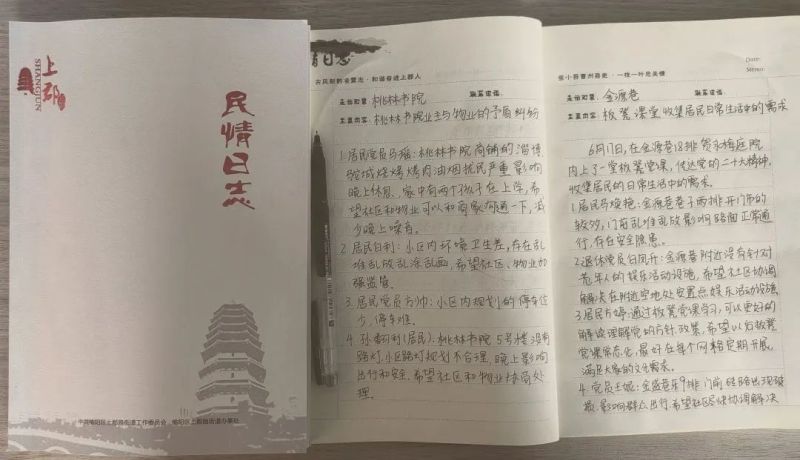 上郡
SHANGJUN
民情日志
中共榆阳区上郡路街道工作委员会 榆阳区上郡路街道办事处
情日志
走访位置 桃林书院 联系电话:
主要内容: 桃林书院业主与物业的矛盾纠纷
1.居民党员马瑞:桃林书院商铺的淄博
驼城烧烤烤肉油烟扰民严重影响
晚上休息,家中有两个孩子在上学,希
望社区和物业可以和商家沟通一下,减
少晚上噪音。
2.居民白利:小区内环境卫生差,存在乱
堆乱放乱涂乱画,希望社区、物业加
强监管。
3.居民党员方帅:小区内规划的停车位
少,停车难。
4.孙利(居民):桃林书院5号楼没有
路灯,小区路灯规划不合理,晚上影响
出行和安全,希望社区和物业协商处
理。
Date:
Memo:
一枝一叶总关情
金源巷 联系电话:
主要内容: 板凳课堂收集居民日常生活中的需求
6月1日,在金源巷18排贺永梅庭院
内上了一堂板凳党课,传达党的二十大精神,
收集居民的日常生活中的需求。
1.居民马艳:金源巷巷子两排开门市的
较多,门前乱堆乱放影响路面正常通
行,存在安全隐患。
2.退休党员白凤升:金源巷附近没有针对
老年人的娱乐活动设施,希望社区协调
解决在附近空地处安置点娱乐活动设施
3.居民方婷:通过板凳党课学习,可以更好的
解读理解党的方针政策,希望以后板凳
党课常态化,最好在每个网格定期开展,
满足大家的文化需求。
4.党员王妮:金盛巷东9排门前砖路出现破
损,影响群众出行,希望社区尽快协调解决